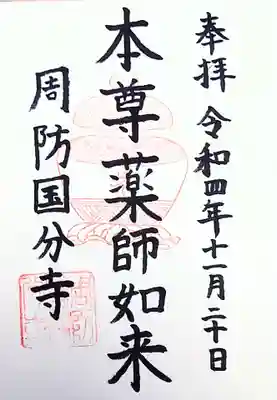 奉拝 令和四年十一月二十日
本尊薬師如来
周防国分寺